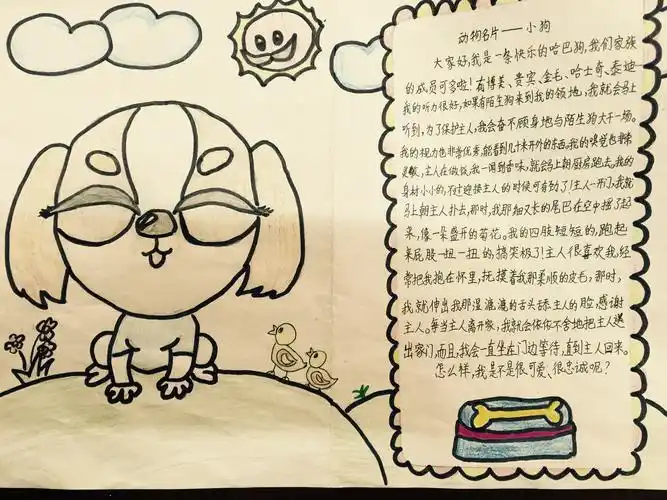 动物名片——小狗
大家好,我是一条快乐的哈巴狗,我们家族
的成员可多啦!有博美、贵宾、金毛、哈士奇、泰迪
我的听力很好,如果有陌生狗来到我的领地,我就会马上
听到,为了保护主人,我会奋不顾身地与陌生狗大干一场。
我的视力也非常优秀,能看到几十米开外的东西。我的嗅觉也非常
灵敏,主人在做饭,我一闻到香味,就会马上朝厨房跑去。我的
身材小小的,不过迎接主人的时候可有劲了!主人一开门,我就
马上朝主人扑去,那时,我那细又长的尾巴在空中摇了起
来,像一朵盛开的菊花。我的四肢短短的,跑起
来屁股一扭一扭的,搞笑极了!主人很喜欢我,经
常把我抱在怀里,抚摸着我那柔顺的皮毛,那时,
我就伸出我那湿漉漉的舌头舔主人的脸,感谢
主人。每当主人离开家,我就会依依不舍地把主人送
出家门,而且,我会一直坐在门边等待,直到主人回来。
怎么样,我是不是很可爱、很忠诚呢?